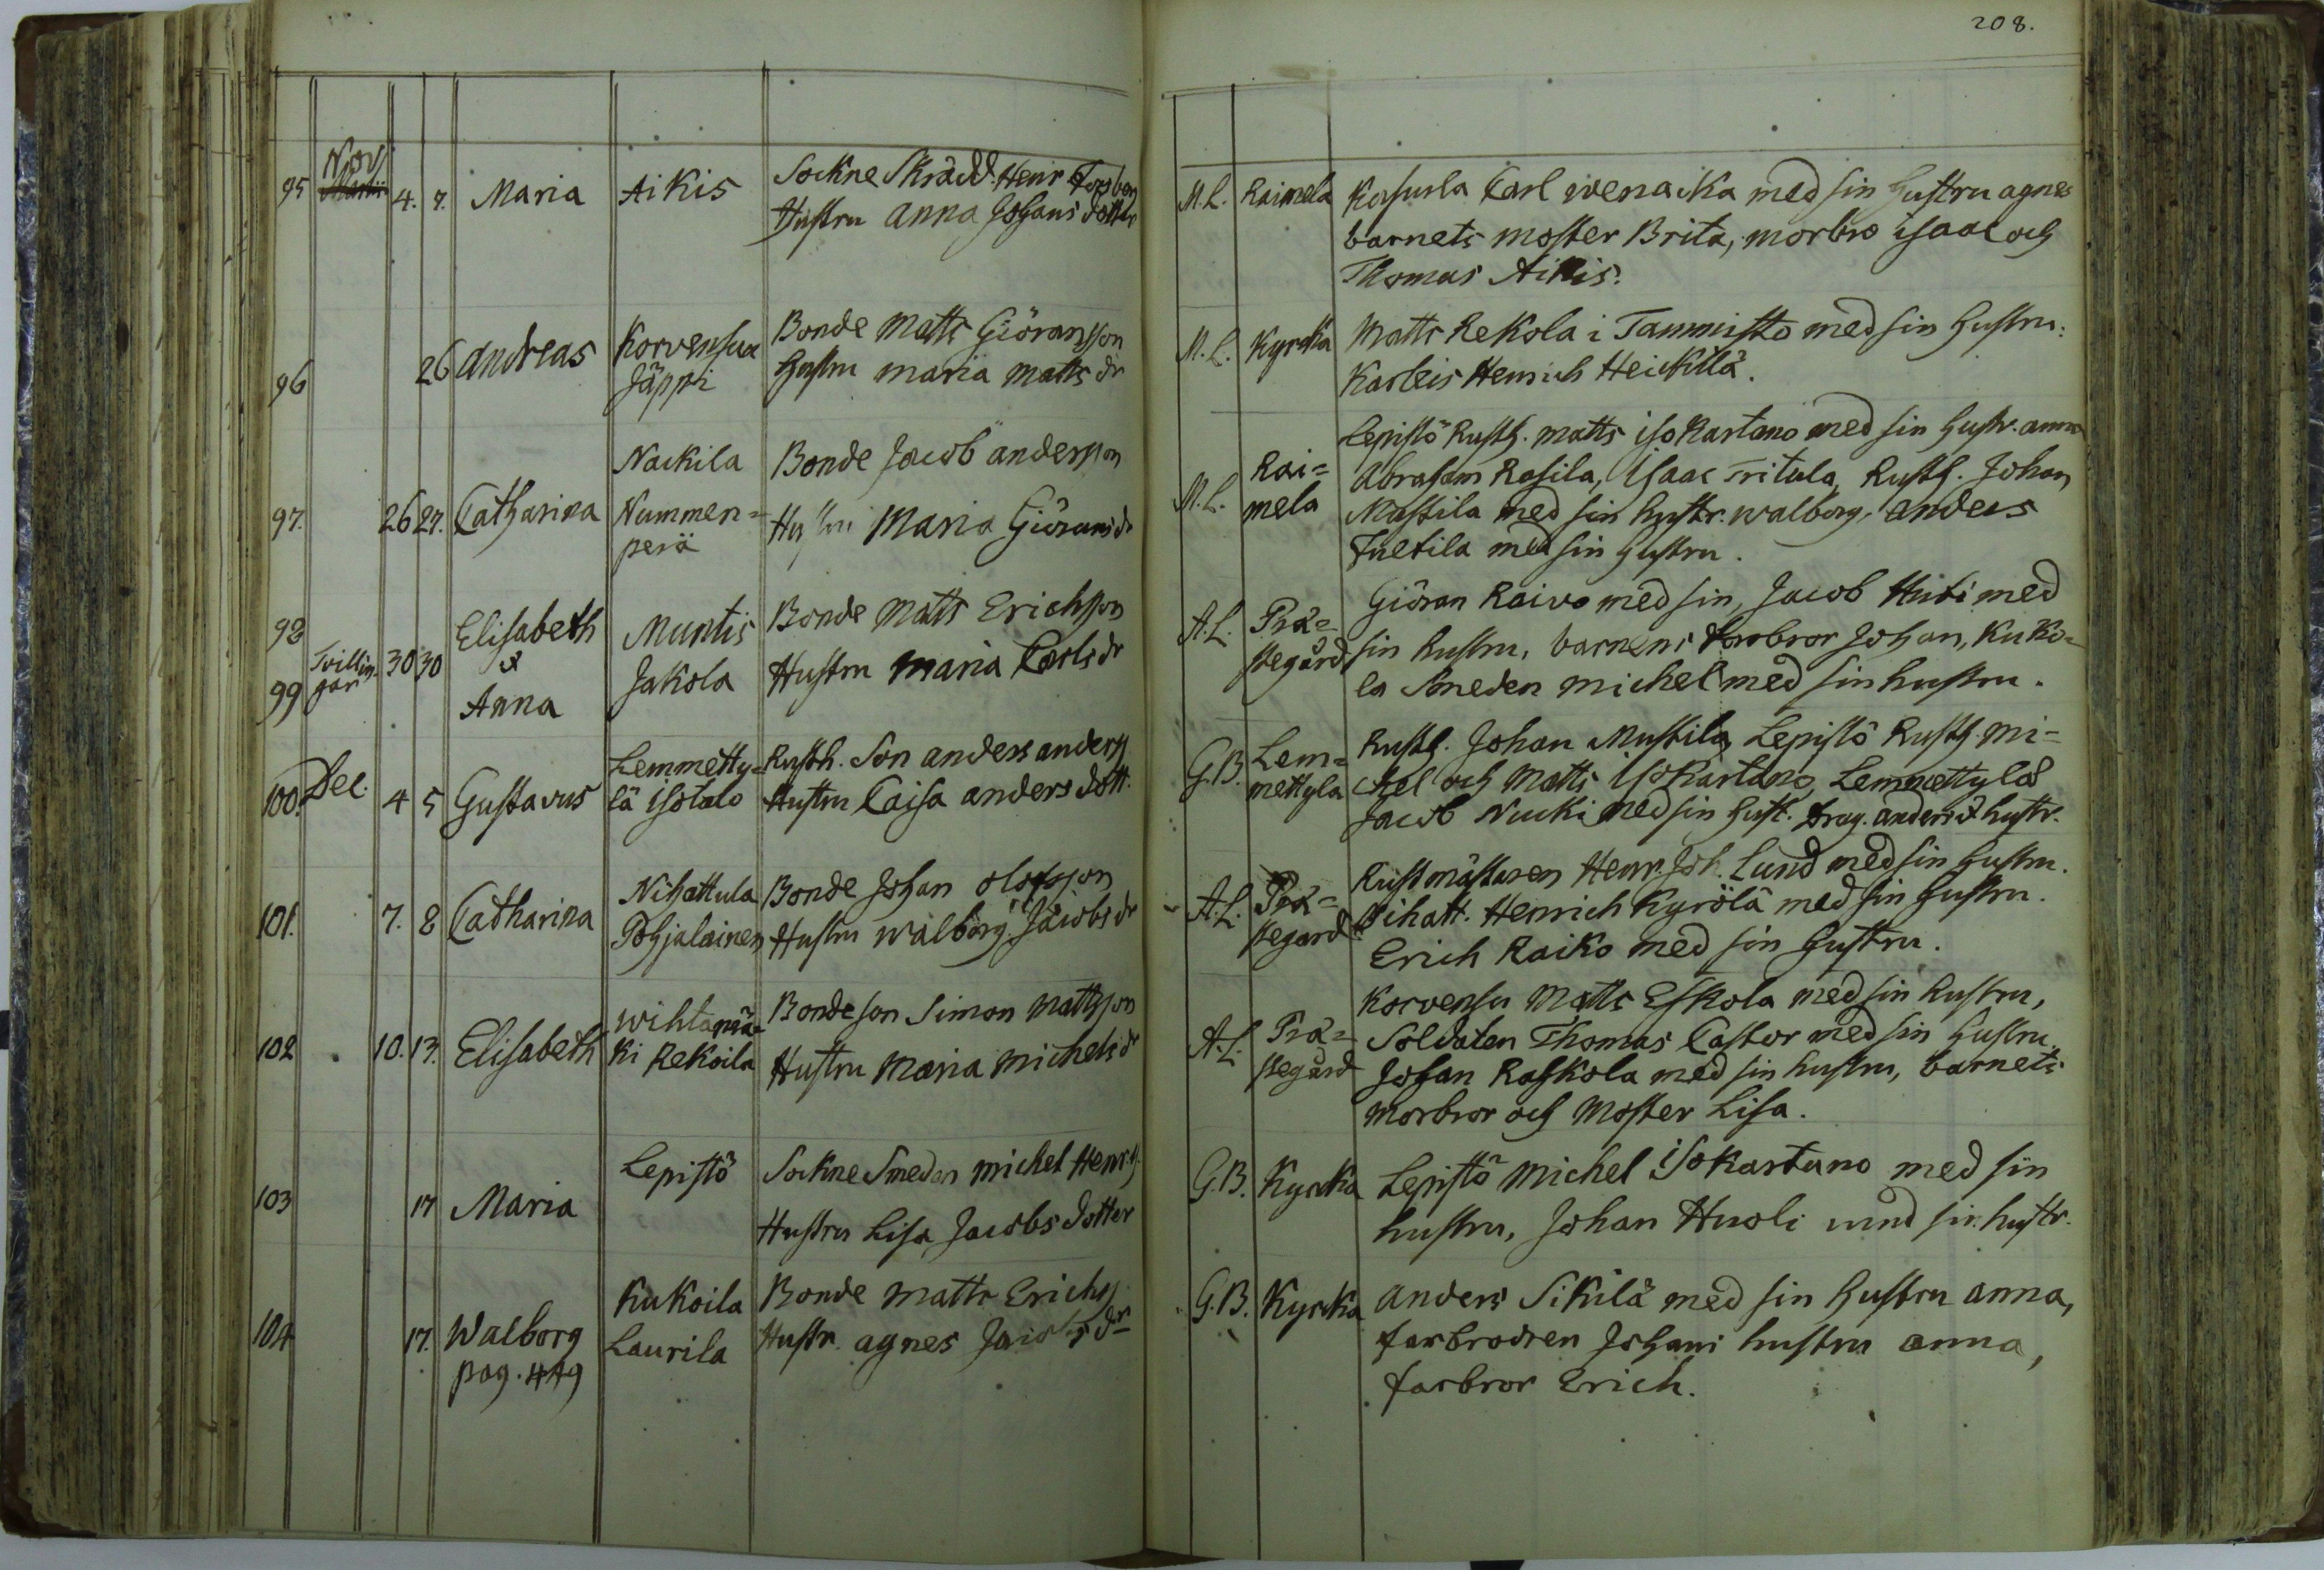 208.
95 Nov Martii 4. 7. Maria Aikis Sockne Skrädd. Henr Forsberg
Hustru Anna Johans dotter
M.L. Raimela Kasurla Carl wenacka med sin hustru agnes
barnets moster Brita, morbro Isaac och
Thomas Aikis.
96 26 Andreas Korvensuu Bonde Matts Giöransson
Jäppi hustru maria matts dr
M.L. Kyrcka Matts Rekola i Tammisto med sin hustru.
Karleis Henrich Heickilä.
97. 26 27. Catharina Nackila Bonde Jacob andersson
Nummen= Hustru Maria Giörans dr
perä
M.L. Rai= Lepistö Rusth. matts isokartano med sin hustr. anna
mela Abraham Rasila, Isaac Fritula, Rusth. Johan
Mustila med sin hustr. walborg, anders
med sin hustru.
98 Elisabeth Muntis Bonde Matts Erichsson
99 Tvillin= 30 30 & Jakola Hustru maria Carls dr
gar Anna
A.L. Prä= Giöran Raivo med sin, Jacob Huti med
stegård sin hustru, barnens farbror Johan, Kuko=
la Smeden michel med sin hustru.
100. Dec. 4 5 Gustavus Lemmetty= Rusth. Son anders anderss
lä isotalo Hustru Caisa anders dott.
G.B. Lem= Rusth. Johan Mustila, Lepistö Rusth. mi=
mettyla chel och Matts isokartano, Lemmettylä
Jacob Nucki med sin hust. drag. anders & hustr.
101. 7. 8 Catharina Nihattula Bonde Johan olofsson
Pohjalainen Hustru walborg Jacobs dr
A.L. Prä= Rustmästaren Henr. Joh. Lund med sin hustru.
stegård Nihatt. Henrich Kyrölä med sin hustru.
Erich Raiko med sin hustru.
102 10. 13. Elisabeth wihtamä= Bonde son Simon Mattsson
ki Rekoila Hustru Maria michels dr
A.L. Prä= Korvensu Matts Eskola med sin hustru,
stegård Soldaten Thomas Castor med sin hustru.
Johan Raskola med sin hustru, barnets
morbror och Moster Lisa.
103 17 Maria Lepistö Sockne Smeden michel Henrss.
Hustru Lisa Jacobs dotter
G.B. Kyrcka Lepistö Michel isokartano med sin
hustru, Johan Huoli med sin hustr.
104 17. Walborg Kukoila Bonde Matts Erichss
pag. 449 Laurila Hustr. agnes Jacobs dr
G.B. Kyrcka Anders Sikilä med sin hustru anna,
farbrodren Johans hustru anna,
farbror Erich.